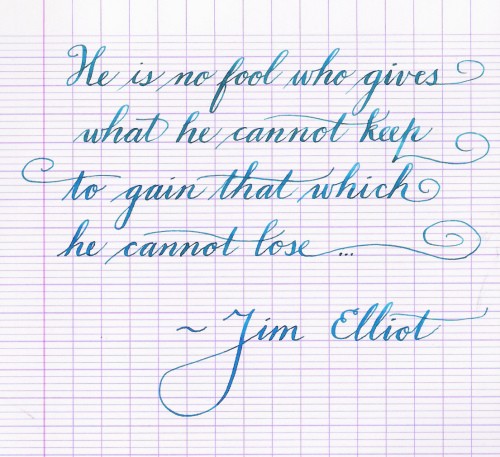 He is no fool who gives
what he cannot keep
to gain that which
he cannot lose ...
~ Jim Elliot